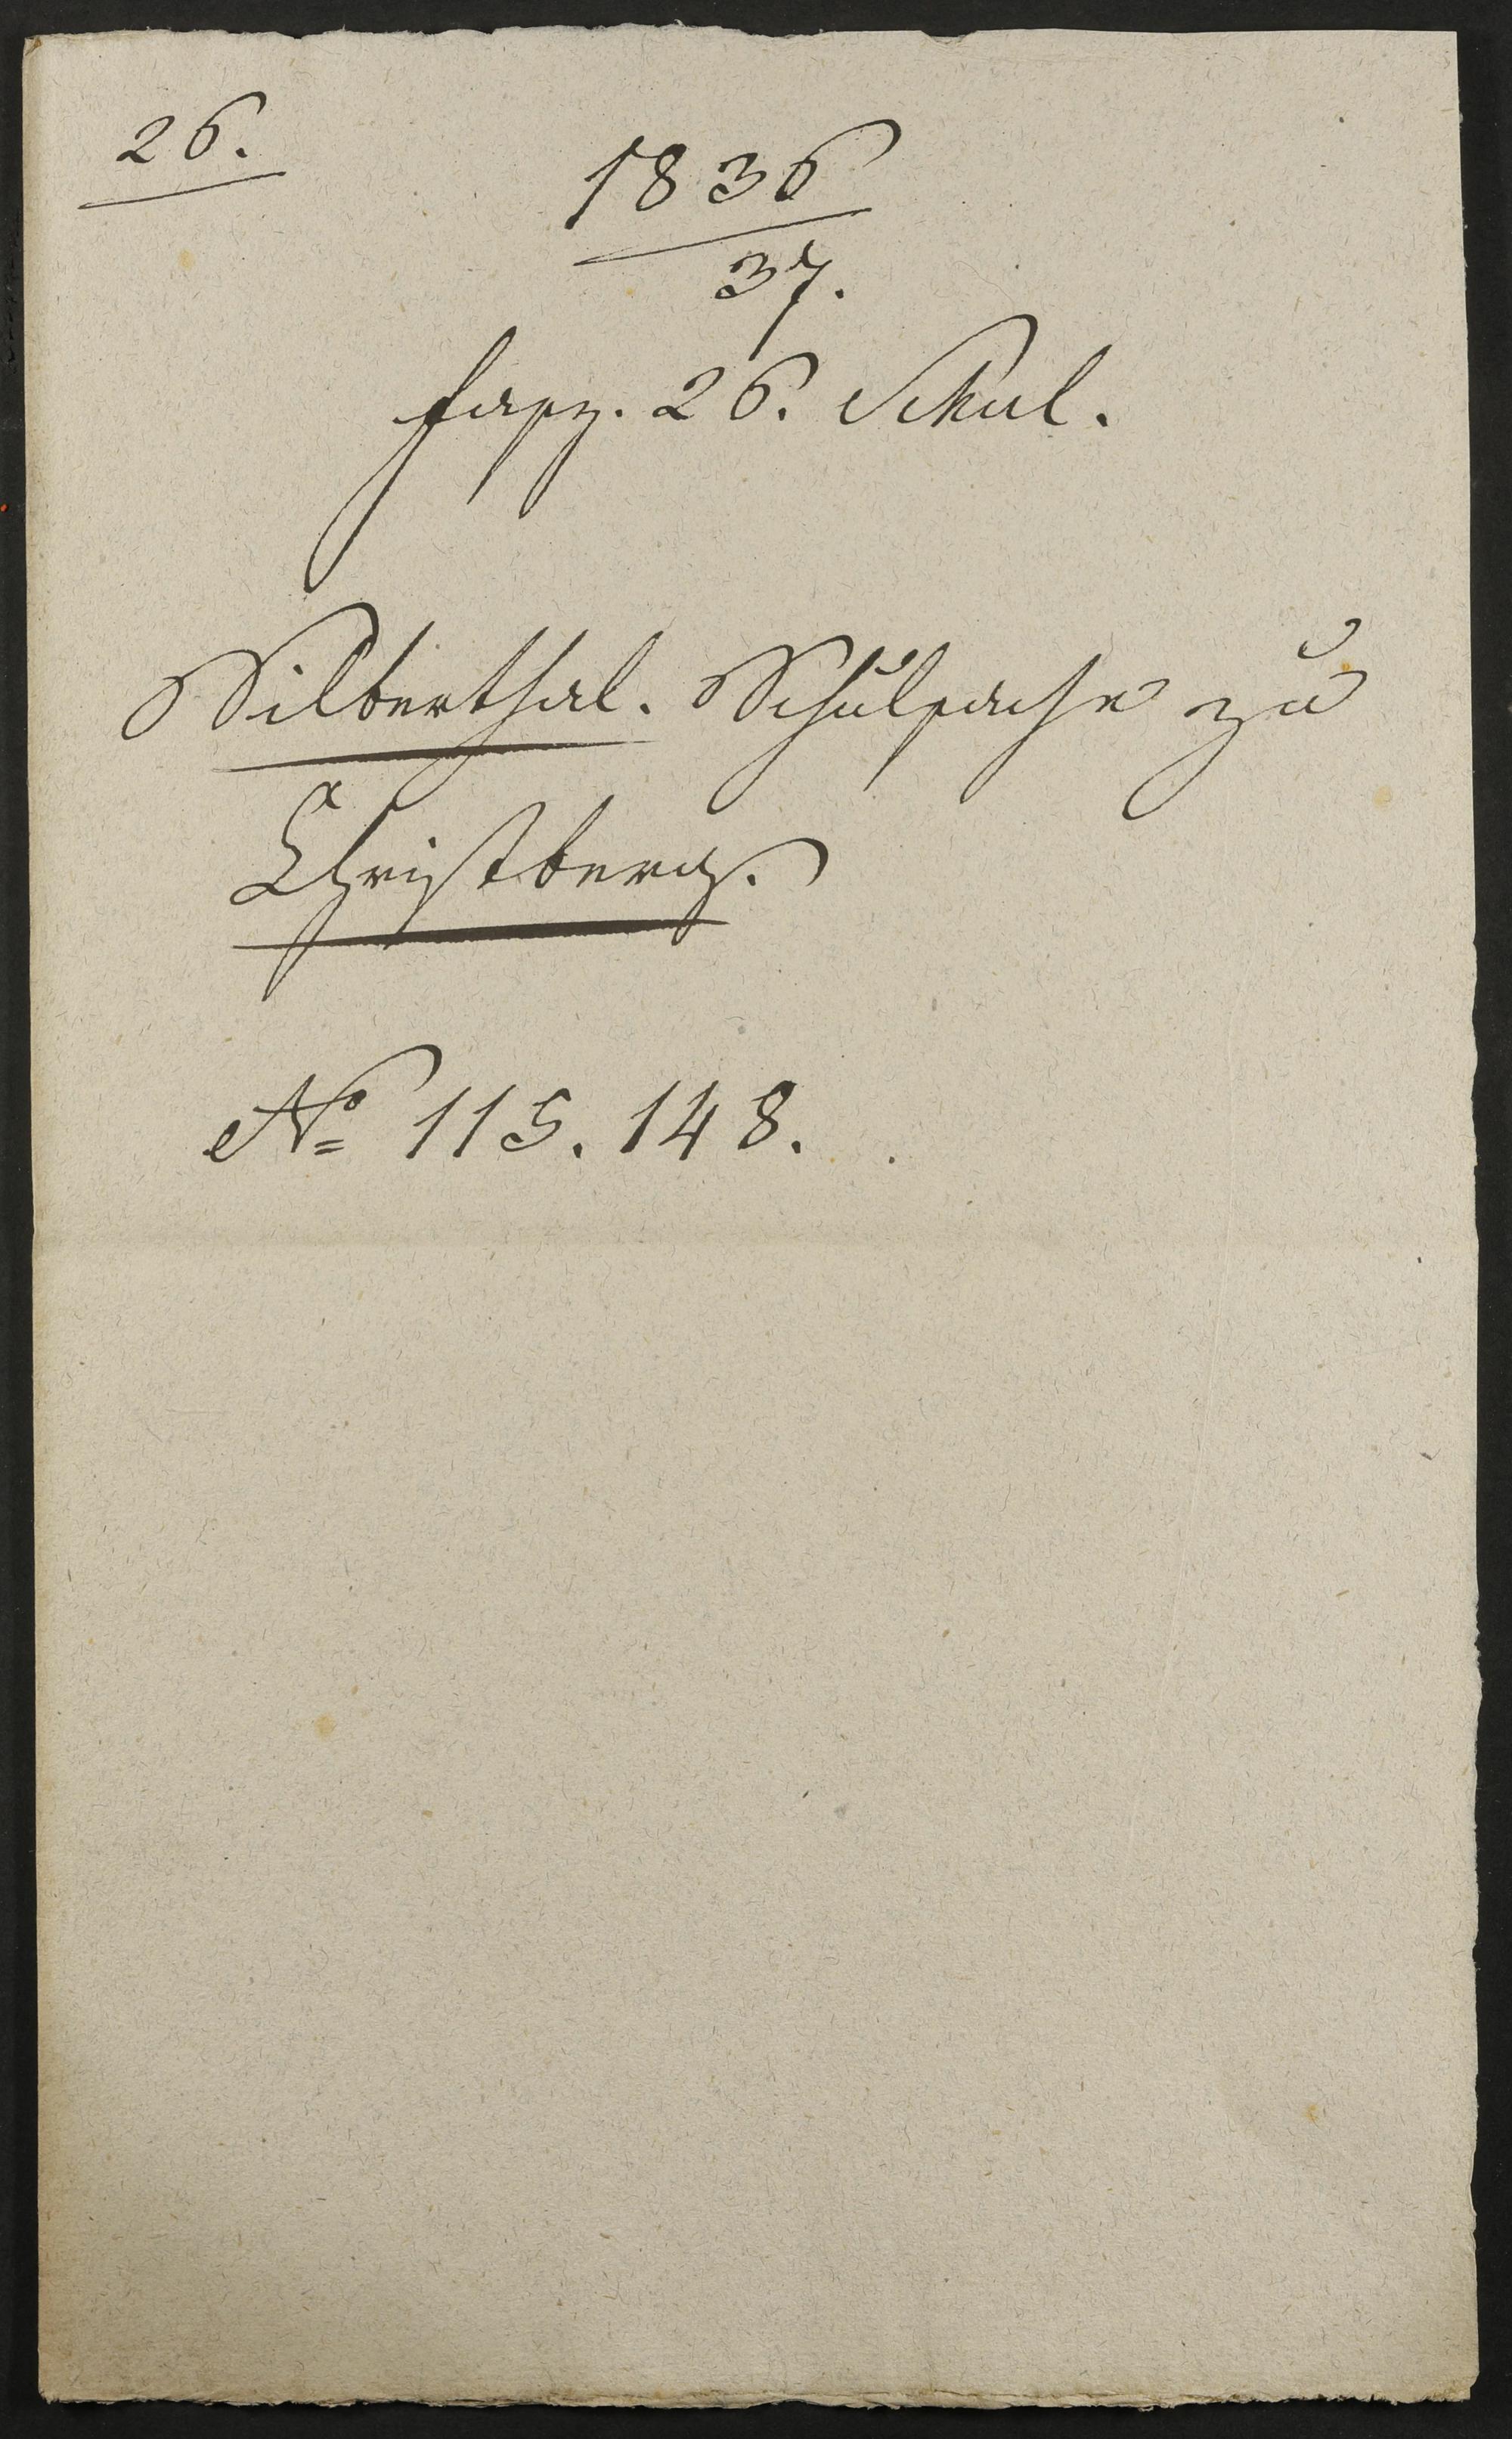 26.
1836
37.
fasz. 26. Schul.
Silberthal. Schulsache zu
Christberg.
No 115. 148.